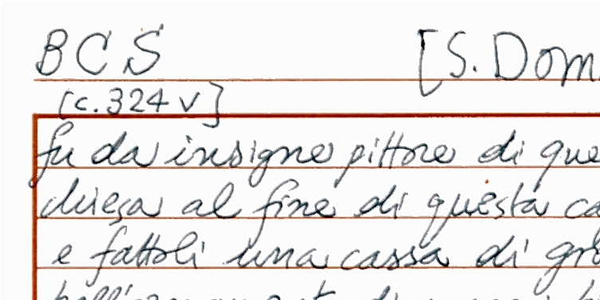 BCS [S. Dom
[c. 324 v]
fu da insigne pittore di que
chiesa al fine di questa ca
e fattoli una cassa di gr